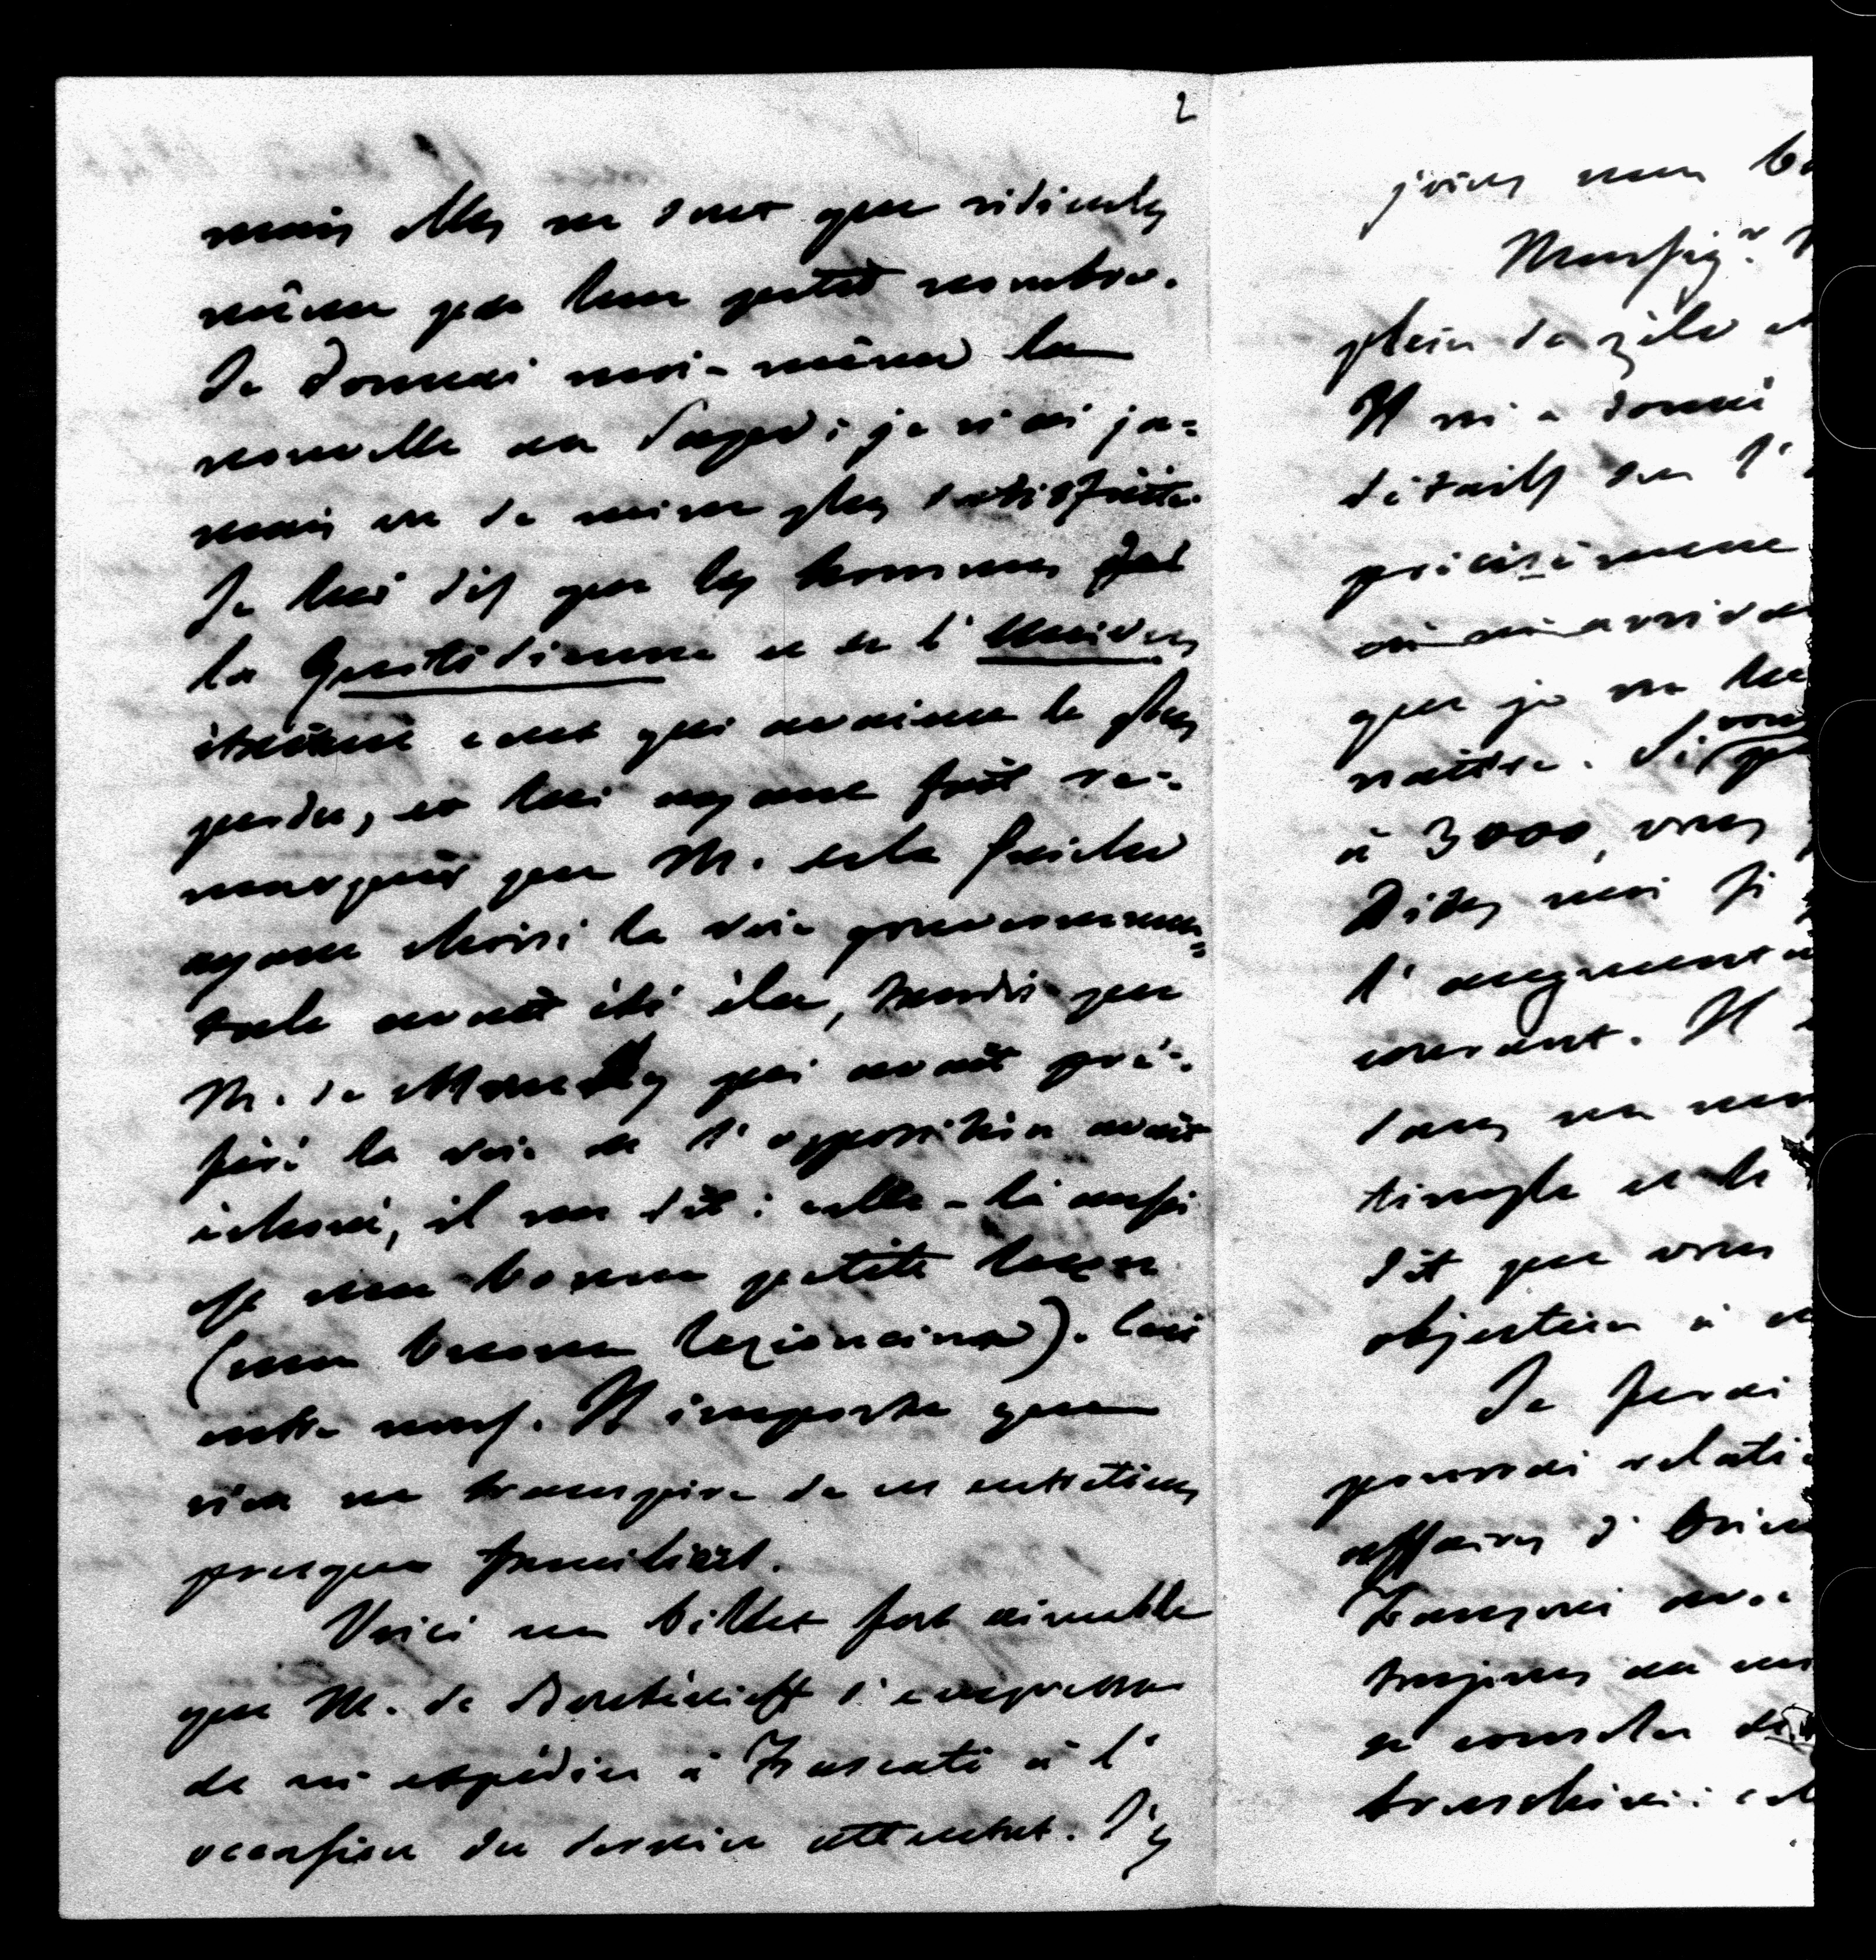 2
mais elles ne sont que ridicules
même par leur petit nombre.
Je donnai moi-même la
nouvelle au Pape: je n'ai ja=
mais vu de mine plus satisfaite.
Je lui dis que les hommes que
la Quotidienne et l'Univers
étaient ceux qui avaient le plus
perdu, et lui ayant fait re=
marquer que M. de la
ayant choisi la voie gouvernemen=
tale avait été élu, tandis que
M. de qui avait pré=
féré la voie de l'opposition avait
échoué, il me dit: celle-là aussi
est une bonne petite leçon
(una buona lezioncina). Ceci
entre nous. Il importe que
rien ne transpire de ces entretiens
presque familiers.
Voici un billet fort aimable
que M. de Boutenieff s'empressa
de m'expédier à Frascati à l'
occasion du dernier attentat. J'y
joins mon
Monsig.r
plein de zèle et
Il m'a donné
détails sur l'
précisément
arriva
que je ne
naître. Si vous
à 3000, vous
Dites moi si
l'augment
courant. Il
dans un
timple et le
dit que vous
objection à
Je ferai
pourrai relati
affaires d'Orien
Franzoni avec
toujours au
se consoler